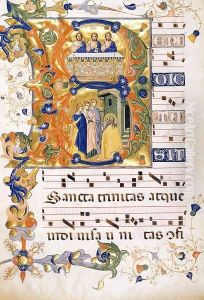 B
DIC
SIT
Sancta trinitas atque
indi uisa u ni tas ofi